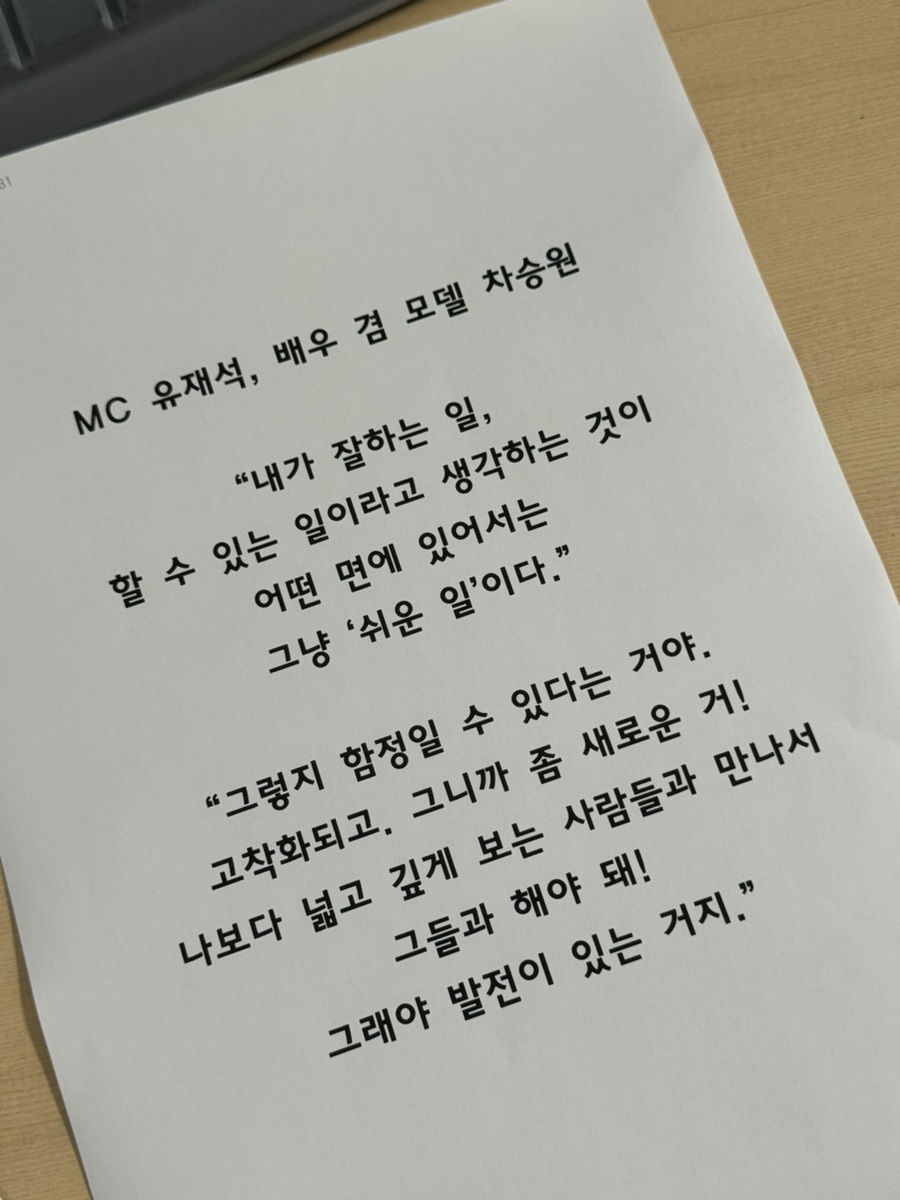 31
MC 유재석, 배우 겸 모델 차승원
“내가 잘하는 일,
할 수 있는 일이라고 생각하는 것이
어떤 면에 있어서는
그냥 ‘쉬운 일’이다.”
“그렇지 함정일 수 있다는 거야.
고착화되고. 그니까 좀 새로운 거!
나보다 넓고 깊게 보는 사람들과 만나서
그들과 해야 돼!
그래야 발전이 있는 거지.”